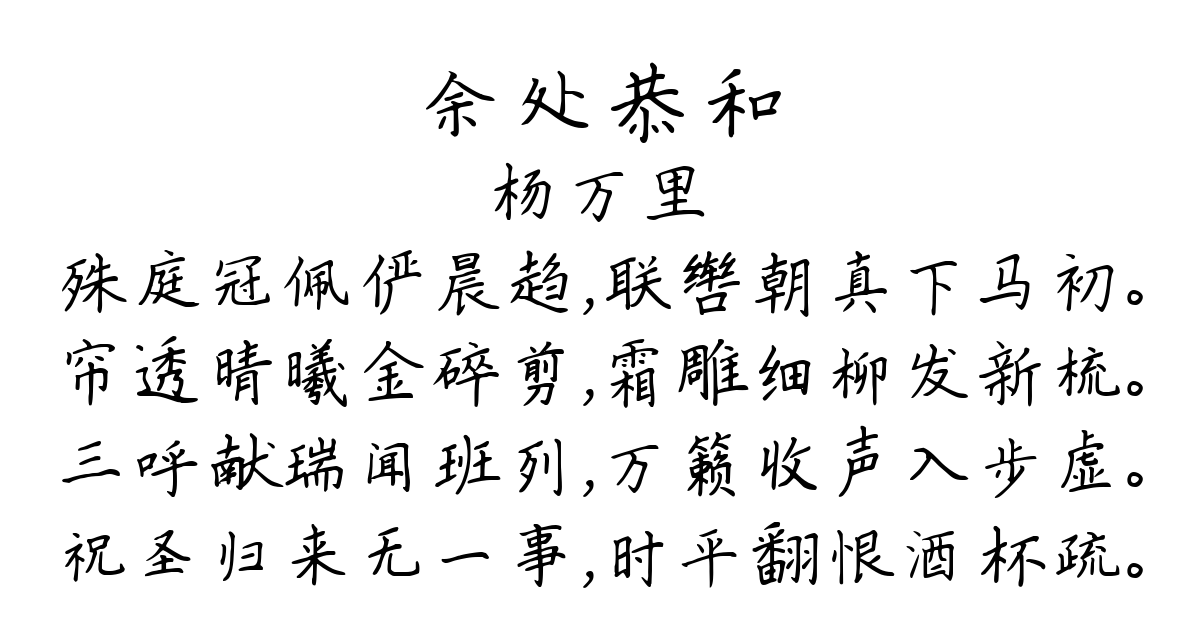 余处恭和
杨万里
殊庭冠佩俨晨趋,联辔朝真下马初。
帘透晴曦金碎剪,霜雕细柳发新梳。
三呼献瑞闻班列,万籁收声入步虚。
祝圣归来无一事,时平翻恨酒杯疏。